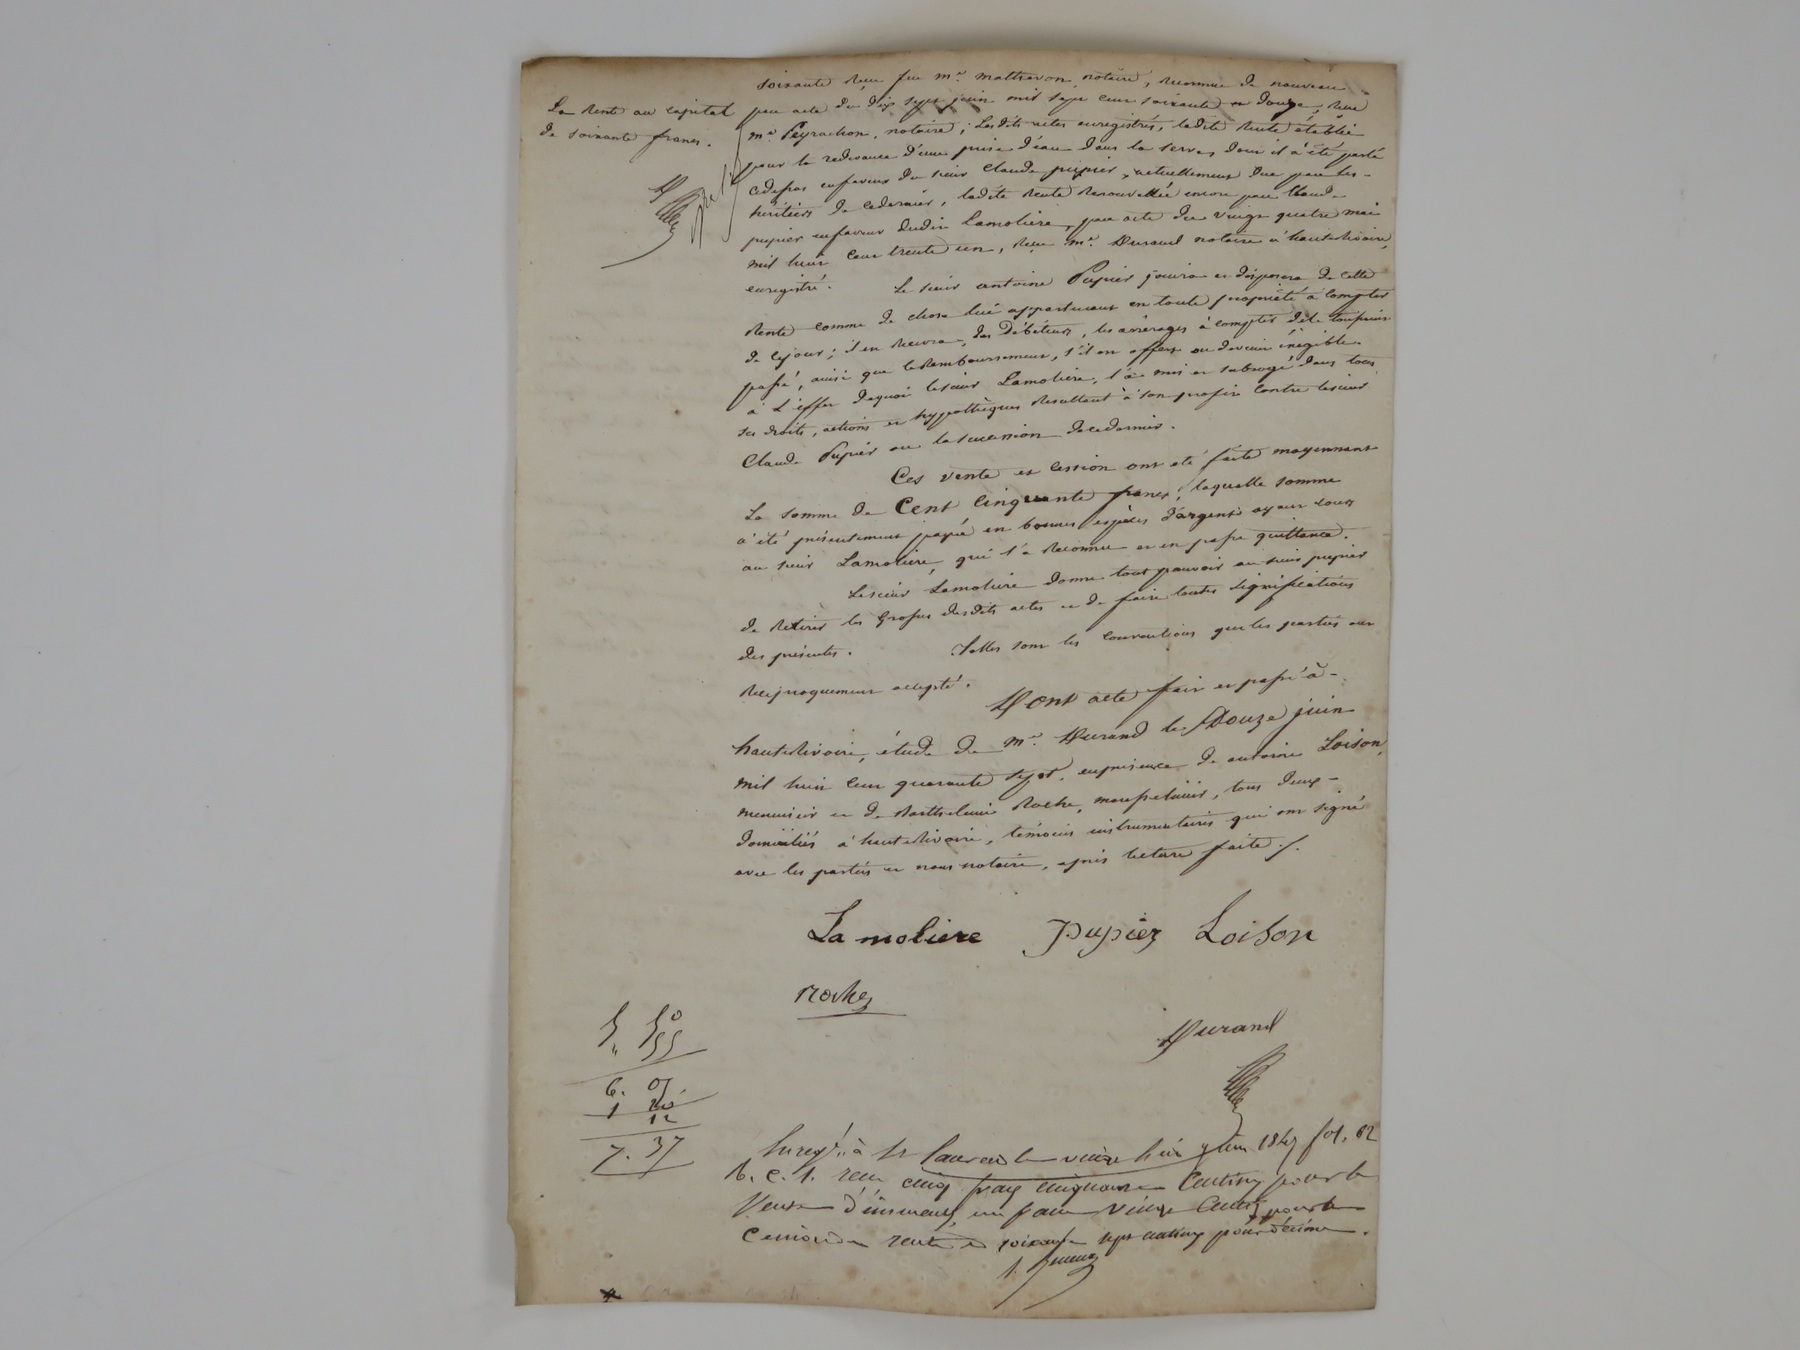 soixante reçu feu me. mathevon notaire, reconnue de nouveau
La Rente au capital
de soixante francs.
par acte du dix sept juin mil sept cent soixante et douze, reçu
me. Peyrachon, notaire; Lesdits actes enregistrés, ladite Rente établie
pour la redevance d'une prise d'eau dans la serve, dont il a été parlé
cidessus enfaveur du sieur Claude pupier, actuellement due par les-
héritiers de cedernier, ladite Rente Renouvellée encore par Claude
pupier enfaveur dudit Lamolière, par acte du vingt quatre mai
mil huit cent trente un, reçu me. Durand notaire à hauterivoire,
enregistré. Le sieur antoine Pupier jouira et disposera de cette
Rente comme de chose lui appartenant en toute propriété à compter
de cejour; il en recevra, des débiteurs, les arrérages à compter de la toussaint
passé, ainsi que le Remboursement, s'il est offert ou devient exigible.
à L'effet dequoi lesieur Lamolière, l'a mis et subrogé dans tous
ses droits, actions et hypothèques Resultant à son profit contre lesieur
Claude Pupier ou la succession decedernier.
Ces vente et cession ont été faite moyennant
La somme de Cent Cinquante francs, laquelle somme
a été présentement payée en bonnes espèces d'argent ayant cours
au sieur Lamolière, qui l'a Reconnu et en passe quittance.
Lesieur Lamolière donne tout pouvoir au sieur pupier
de Retirer les Grosses desdits actes et de faire toutes significations
des présentes. Telles sont les conventions que les parties ont
Reciproquement accepté.
Dont acte fait et passé à-
hauterivoire, étude de me. Durand le Douze juin
mil huit cent quarante sept, enprésence de antoine Loison,
menuisier et de Barthelemi Roche, marechal, tous deux-
domiciliés à hauterivoire, témoins instrumentaires qui ont signé
avec les parties et nous notaire, après lecture faite./.
Lamoliere pupier Loison
roche
Durand
5 50
" 55
6. 05
1 20
12
7. 37
Enregé. à St Laurent le vingt huit juin 1847 fol. 62
R. C. 1. reçu cinq francs cinquante Centimes pour la
Vente d'immeubles, un franc vingt Centimes pour la
Cession de rente et soixante sept centimes pour décime.